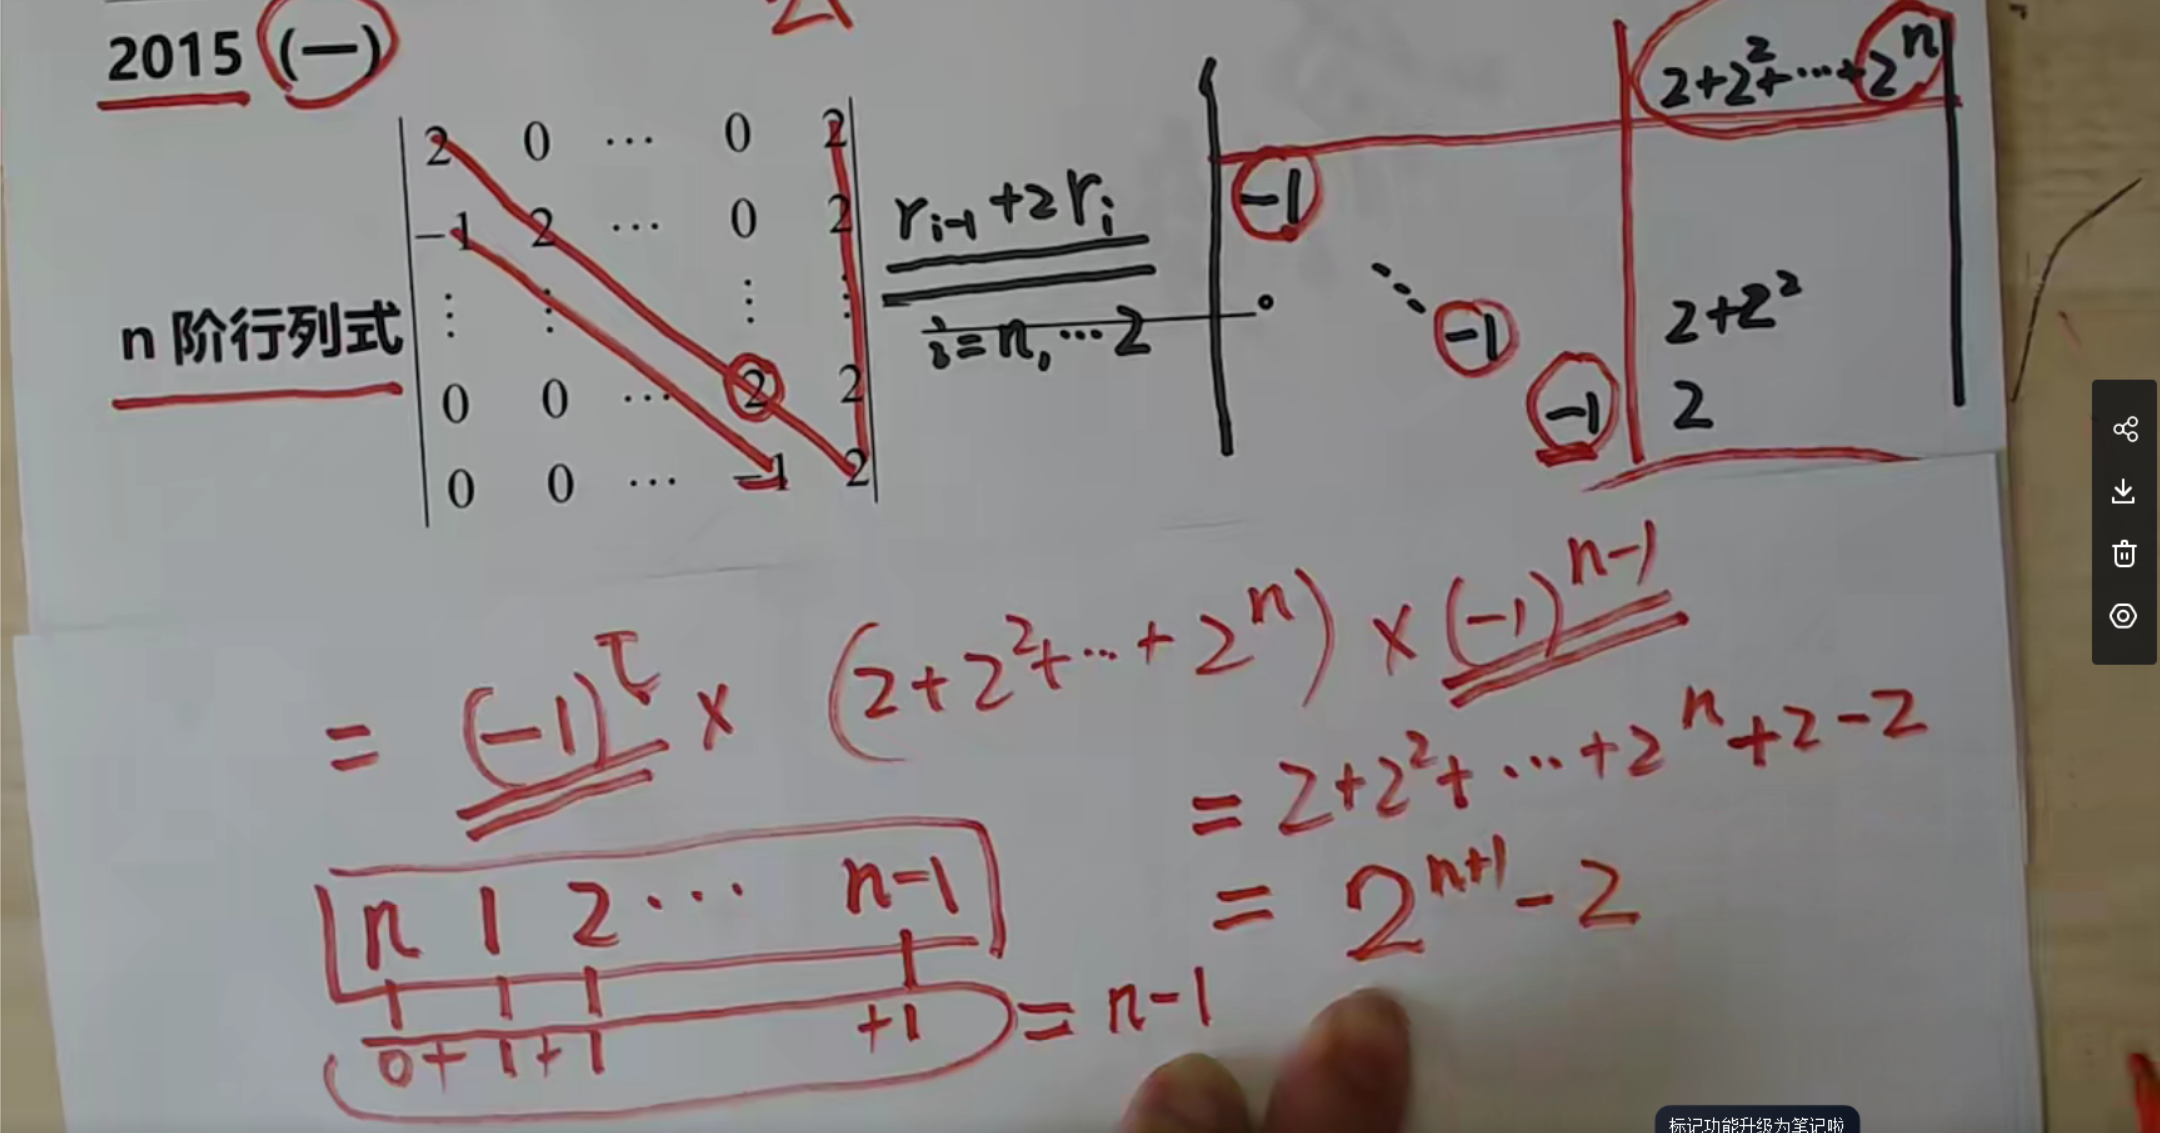 2015 (一)
n 阶行列式
2 0 ⋯ 0 2
−1 2 ⋯ 0 2
⋮ ⋮ ⋮ ⋮
0 0 ⋯ 2 2
0 0 ⋯ −1 2
rᵢ₋₁+2rᵢ
i=n,⋯2
2+2²+⋯+2ⁿ
−1
0 ⋱ −1 2+2²
−1 2
= (−1)^τ × (2+2²+⋯+2ⁿ) × (−1)ⁿ⁻¹
= 2+2²+⋯+2ⁿ+2−2
= 2ⁿ⁺¹−2
n 1 2 ⋯ n−1
0+ 1+1 +1 = n−1
标记功能升级为笔记啦